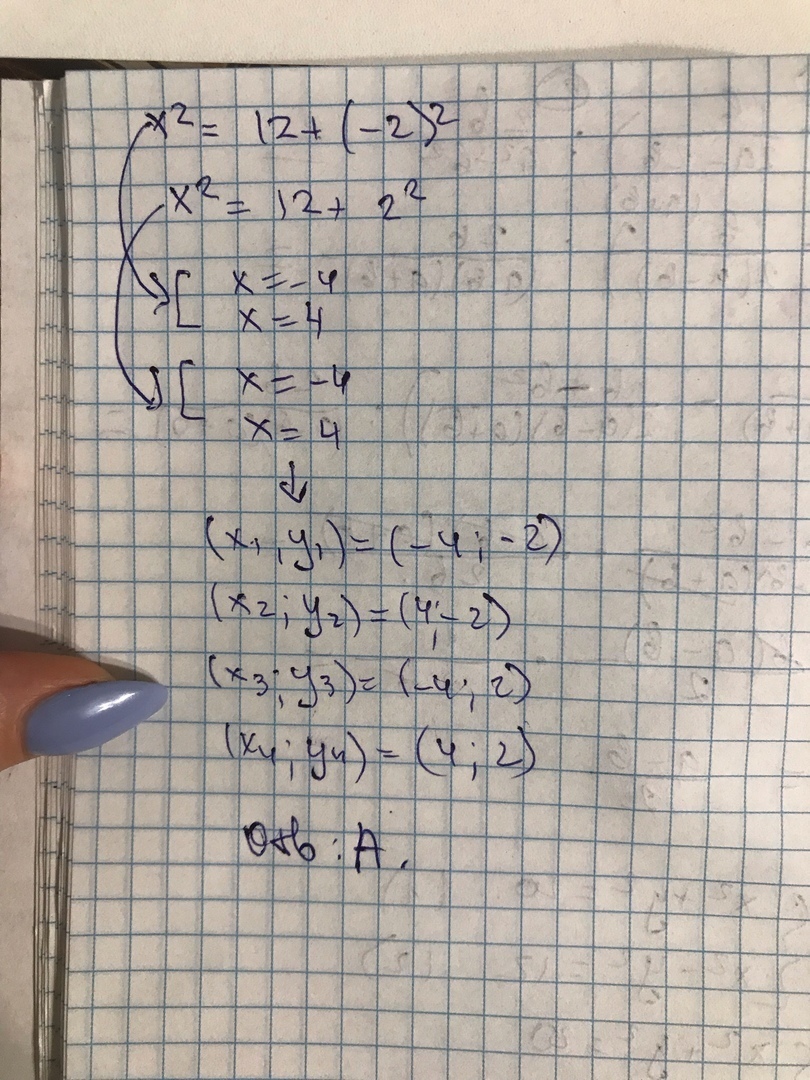 x² = 12 + (-2)²
x² = 12 + 2²
[ x = -4
x = 4
[ x = -4
x = 4
↓
(x₁, y₁) = (-4; -2)
(x₂; y₂) = (4; -2)
(x₃; y₃) = (-4; 2)
(x₄; y₄) = (4; 2)
Отв: A.